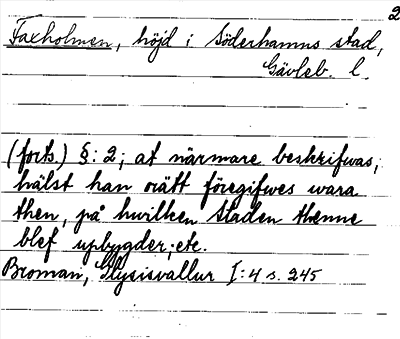 2
Faxholmen, höjd i Söderhamns stad,
Gävleb. l.
(forts.) §: 2; at närmare beskrifwas,
hälst han orätt föregifwes wara
then, på hwilken Staden thenne
blef upbygder; etc.
Broman, Glysisvallur I: 4 s. 245